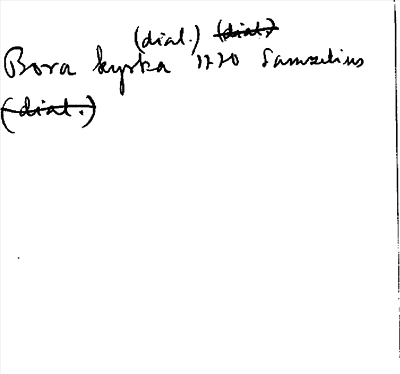 (dial.) (dial.)
Bora kyrka 1720 Samzelius
(dial.)